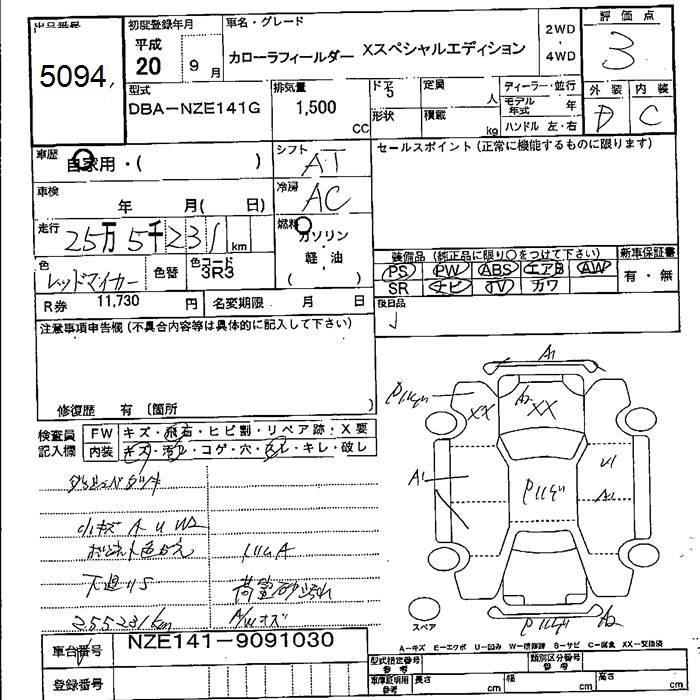 出品番号
5094
初度登録年月
平成
20 9 月
車名・グレード
カローラフィールダー Xスペシャルエディション
2WD
・
4WD
評価点
3
型式
DBA-NZE141G
排気量
1,500
CC
ドア
5
形状
定員
人
積載
kg
ディーラー・並行
モデル年式 年
ハンドル 左・右
外装 内装
D C
車歴
自家用・( )
シフト
AT
セールスポイント (正常に機能するものに限ります)
車検
年 月( 日)
冷房
AC
走行
25万5千231km
燃料
ガソリン
・
軽・油
( )
色
レッドマイカー
色替
色コード
3R3
装備品 (純正品に限り○をつけて下さい)
PS PW ABS エアB AW
SR ナビ TV カワ
新車保証書
有・無
R券 11,730 円
名変期限 月 日
後日品
注意事項申告欄 (不具合内容等は具体的に記入して下さい)
修復歴 有 〔箇所
検査員
記入欄
FW キズ・飛石・ヒビ割・リペア跡・X要
内装 キズ・汚レ・コゲ・穴・スレ・キレ・破し
小キズ A U W2
下廻りS
荷室砂汚れ
255231km
A/Wキズ
A1
XX
A2
XX
A1
A1
A2
スペア
A-キズ E-エクボ U-凹み W-補修跡 S-サビ C-腐食 XX-交換済
車台番号
NZE141-9091030
登録番号
型式指定番号
参考
類別区分番号
参考
車庫証明用
参考
長さ cm
幅 cm
高さ cm